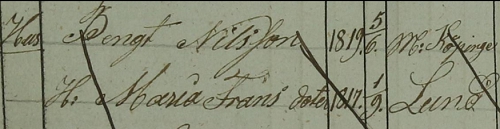 Hus Bengt Nilsson 1819 5/6. M: Köpinge
H: Maria Frans doter 1817. 1/9. Lund